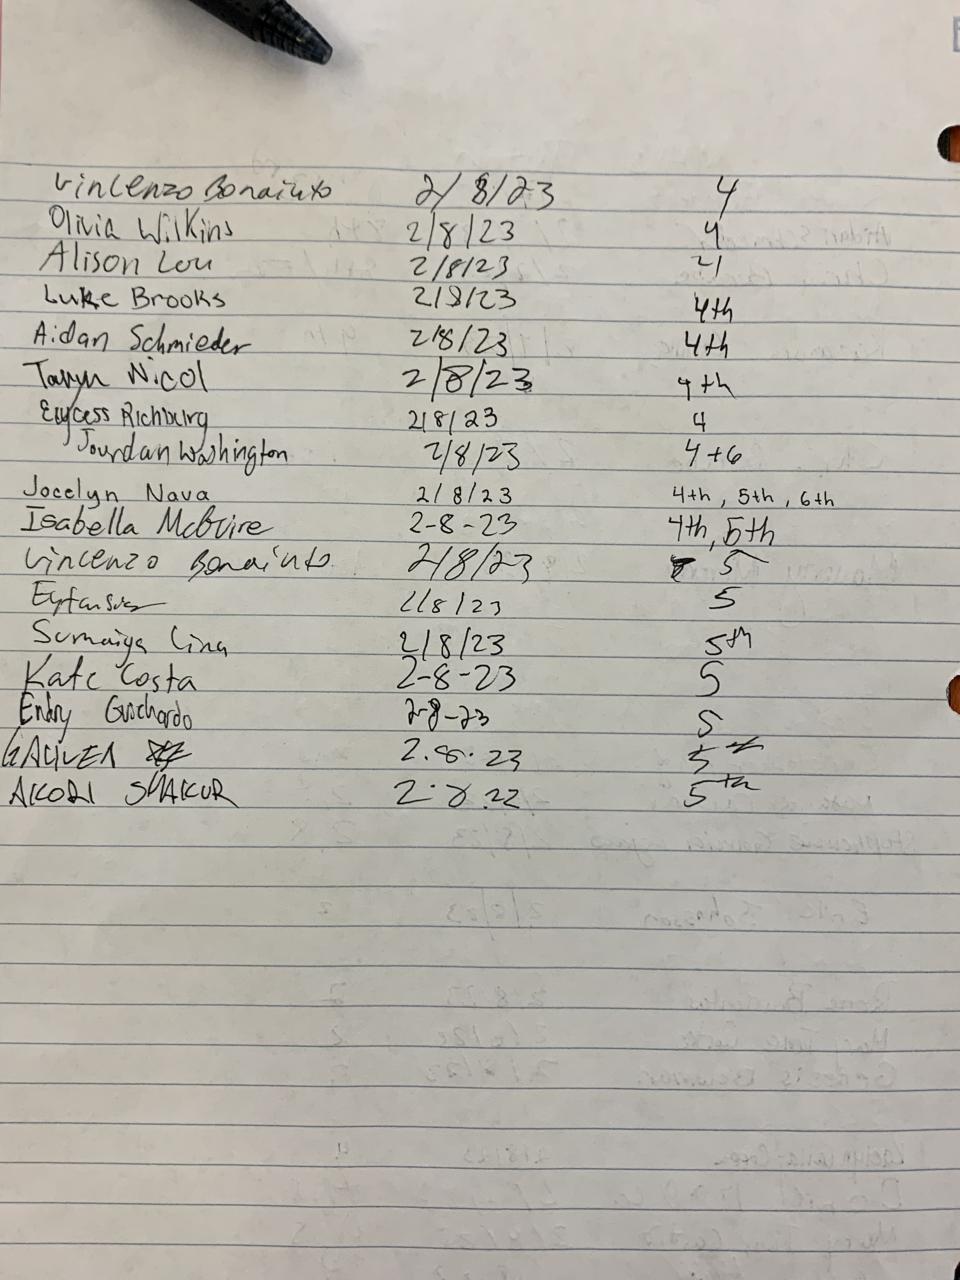 Vincenzo Bonaiuto 2/8/23 4
Olivia Wilkins 2/8/23 4
Alison Lou 2/8/23 4
Luke Brooks 2/8/23 4th
Aidan Schmieder 2/8/23 4th
Taryn Nicol 2/8/23 4th
Richburg 2/8/23 4
Jourdan Washington 2/8/23 4+6
Jocelyn Nava 2/8/23 4th, 5th, 6th
Isabella McGuire 2-8-23 4th, 5th
Vincenzo Bonaiuto 2/8/23 5
2/8/23 5
Sumaiya 2/8/23 5th
Kate Costa 2-8-23 5
2-8-23 5
2.8.23 5th
AKORI SHAKUR 2.8.22 5th